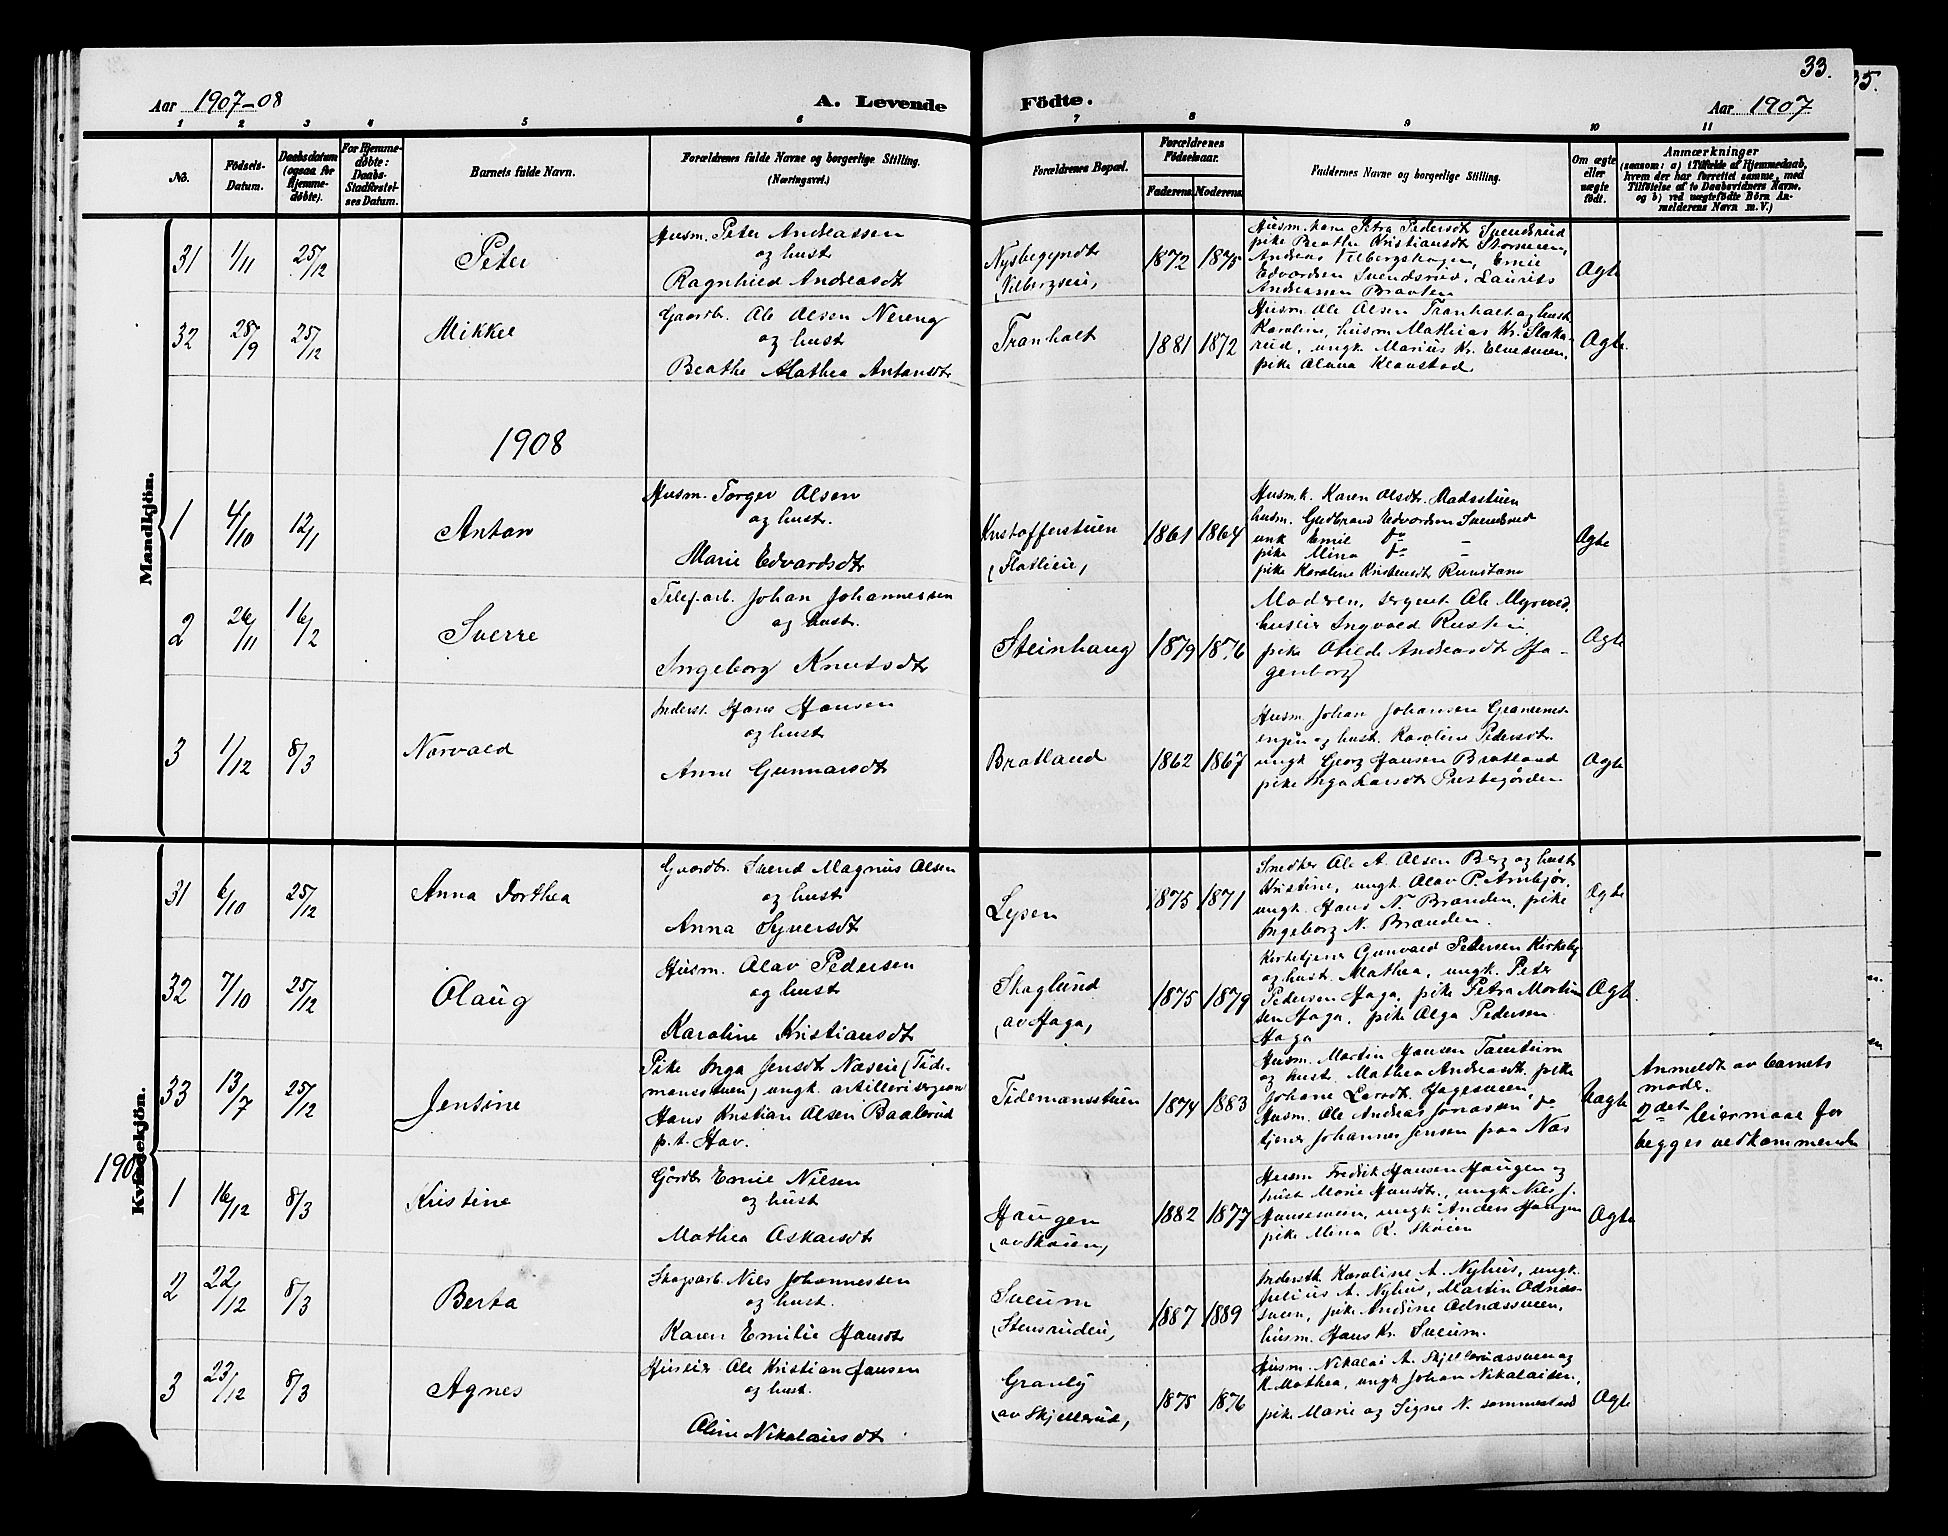 33.
35.
Aar 1907-08
A. Levende
Födte.
Aar 1907
1 2 3 4 5 6 7 8 9 10 11
No.
Födsels-
Datum.
Daabsdatum
(ogsaa for
Hjemme-
døbte).
For Hjemme-
døbte:
Daabs-
Stadfæstel-
ses Datum.
Barnets fulde Navn.
Forældrenes fulde Navne og borgerlige Stilling.
(Næringsvei.)
Forældrenes Bopæl.
Forældrenes
Födselsaar.
Faderens.
Moderens.
Faddernes Navne og borgerlige Stilling.
Om ægte
eller
uægte
født.
Anmærkninger
(saasom: a) i Tilfælde af Hjemmedaab,
hvem der har forrettet samme, med
Tilføielse af to Daabsvidners Navne,
og b) ved uægtefödte Börn An-
melderens Navn m. V.)
Mandkjön.
31 1/11 25/12 Peter
Husm. Peter Andreassen
og hust
Ragnhild Andreasdt
Nysbegyndt
(Vilbergseie)
1872 1875
Husm.kone Petra Pedersdt Svendsrud
pike Beathe Kristiansdt Storsveen,
Andreas Vilbergshagen, Emil
Edvardsen Svendsrud, Laurits
Andreassen Braaten
Ægte
32 25/9 25/12 Mikkel
Gaardbr. Ole Olsen Nereng
og hust
Beathe Mathea Antonsdt
Tranholt
1881 1872
Husm. Ole Olsen Tranholt og hust
Karoline, husm. Mathias Kr. Slaka-
rud, ungk. Marius Kr. Elvesveen,
pike Alma Klavstad
Ægte.
1908
1 4/10 12/1 Anton
Husm. Torger Olsen
og hust.
Marie Edvardsdt
Kristofferstuen
(Flatlieie)
1861 1864
Husm.k. Karen Olsdt. Madsstuen
husm. Gudbrand Edvardsen Svendsrud
unk Emil do -
pike Mina do -
pike Karoline Kristensdt Runstam
Ægte
2 26/11 16/2 Sverre
Telef.arb. Johan Johannessen
og hust.
Ingeborg Knutsdt
Steinhaug
1879 1876
Moderen, sergent Ole Myrvold,
huseier Ingvald Rustin
pike Otilde Andreasdt Ha-
genborg
Ægte
3 1/12 8/3 Norvald
Inderst. Hans Hansen
og hust
Anne Gunnarsdt
Bratland
1862 1867
Husm. Johan Johansen Grannes-
engen og hust. Karoline Pedersdt.
ungk Georg Hansen Bratland
pike Inga Larsdt Prestegården
Ægte
Kvindekjön.
31 6/10 25/12 Anna Dorthea
Gaardbr. Svend Magnus Olsen
og hust
Anna Syversdt
Lysen
1875 1871
Snedker Ole A. Olsen Berg og hust
Kristine, ungk. Olav P. Arnkjør,
ungk. Hans N. Branden, pike
Ingeborg N. Branden.
Ægte
32 7/10 25/12 Olaug
Husm. Olav Pedersen
og hust
Karoline Kristiansdt
Skoglund
(av Haga)
1875 1879
Kirketjener Gunvald Pedersen Kirkeby
og hust. Mathea, ungk. Peter
Pedersen Haga, pike Petra Mortin
sen Haga, pike Olga Pedersen
Haga
Ægte.
33 13/7 25/12 Jensine
Pike Inga Jensdt Næseie (Tide-
mansstuen) ungk. artillerisersjean
Hans Kristian Olsen Baalerud
p.t. Hov.
Tidemansstuen
1874 1883
Husm. Martin Hansen
og hust. Mathea Andreasdt, pike
Johane Larsdt. Hagesveen,
Husm. Ole Andreas Jonassen do
tjener Johannes Jensen paa Næs
Uægte
Anmeldt av barnets
mode.
2det leiermaal for
begges vedkommende
190
1 16/12 8/3 Kristine
Gårdbr Emil Nilsen
og hust
Mathea Oskarsdt
Haugen
(av Skøien)
1882 1877
Husm Fredrik Hansen Haugen og
hust Marie Hansdt., ungk Nils J.
Hansesveen, ungk Anders Haugen
pike Mina R. Skøien
Ægte
2 22/12 8/3 Berta
Skogsarb. Nils Johannessen
og hust.
Karen Emilie Hansdt
Sveum
(Stensrudeie)
1887 1889
Inderstk Karoline A. Nyhus, ungk.
Julius A. Nyhus, Martin Odnæs-
sveen, pike Andine Odnæssveen,
husm. Hans Kr. Sveum.
3 23/12 8/3 Agnes
Huseier Ole Kristian Hansen
og hust.
Oline Nikolaisdt
Granly
(av Skjellerud)
1875 1876
Husm. Nikolai A. Skjellerudssveen og
k Mathea, ungk Johan Nikolaisen,
pike Marie og Signe N. sammesteds
Ægte